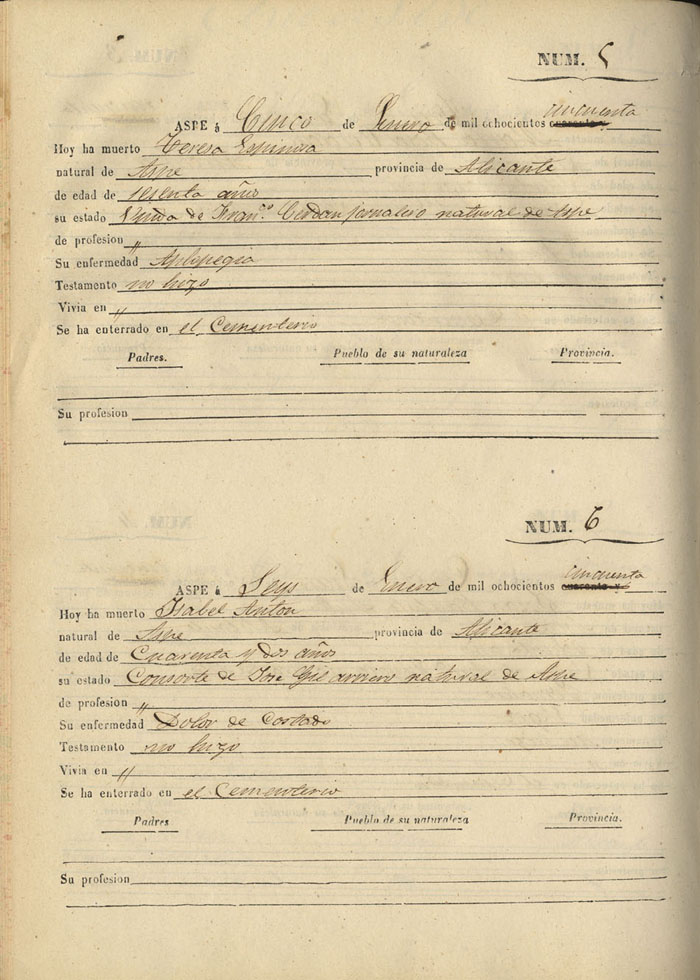 NUM. 5
ASPE á Cinco de Enero de mil ochocientos cincuenta
Hoy ha muerto Teresa Espinosa
natural de Aspe provincia de Alicante
de edad de sesenta años
su estado Viuda de Fran.co Cerdan jornalero natural de Aspe
de profesion "
Su enfermedad
Testamento no hizo
Vivia en "
Se ha enterrado en el Cementerio
Padres. Pueblo de su naturaleza Provincia.
Su profesion
NUM. 6
ASPE á Seys de Enero de mil ochocientos cincuenta
Hoy ha muerto Isabel Anton
natural de Aspe provincia de Alicante
de edad de Cuarenta y dos años
su estado Consorte de Jose Gil arriero natural de Aspe
de profesion "
Su enfermedad Dolor de Costado
Testamento no hizo
Vivia en "
Se ha enterrado en el Cementerio
Padres Pueblo de su naturaleza Provincia.
Su profesion